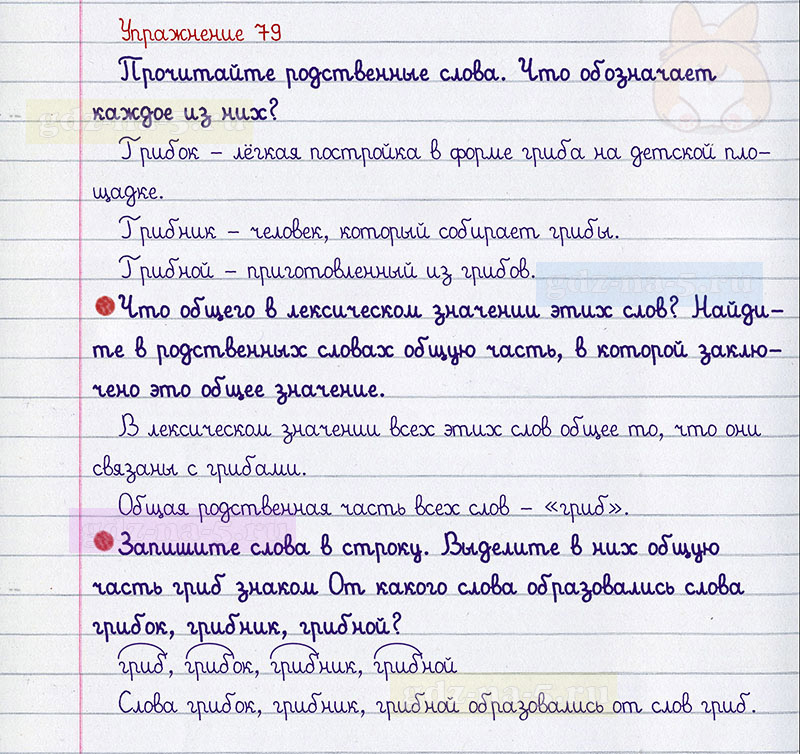 Упражнение 79
Прочитайте родственные слова. Что обозначает
каждое из них?
gdz-na-5.ru
Грибок – лёгкая постройка в форме гриба на детской пло-
щадке.
Грибник – человек, который собирает грибы.
Грибной – приготовленный из грибов.
gdz-na-5.ru
Что общего в лексическом значении этих слов? Найди-
те в родственных словах общую часть, в которой заклю-
чено это общее значение.
В лексическом значении всех этих слов общее то, что они
связаны с грибами.
Общая родственная часть всех слов – «гриб».
gdz-na-5.ru
Запишите слова в строку. Выделите в них общую
часть гриб знаком От какого слова образовались слова
грибок, грибник, грибной?
гриб, грибок, грибник, грибной
gdz-na-5.ru
Слова грибок, грибник, грибной образовались от слов гриб.